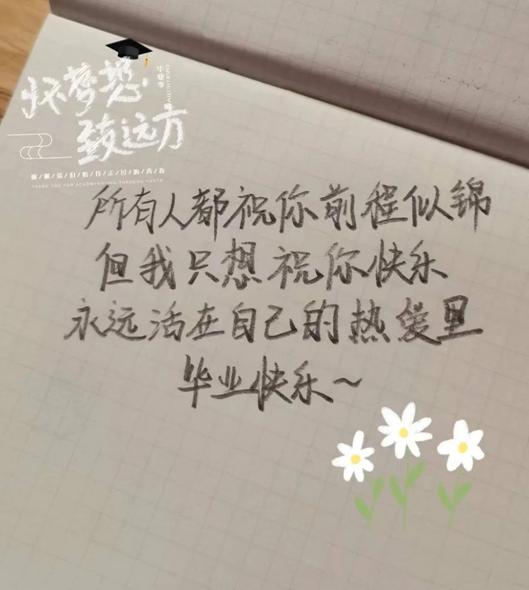 怀梦想
致远方
毕业季
所有人都祝你前程似锦
但我只想祝你快乐
永远活在自己的热爱里
毕业快乐~